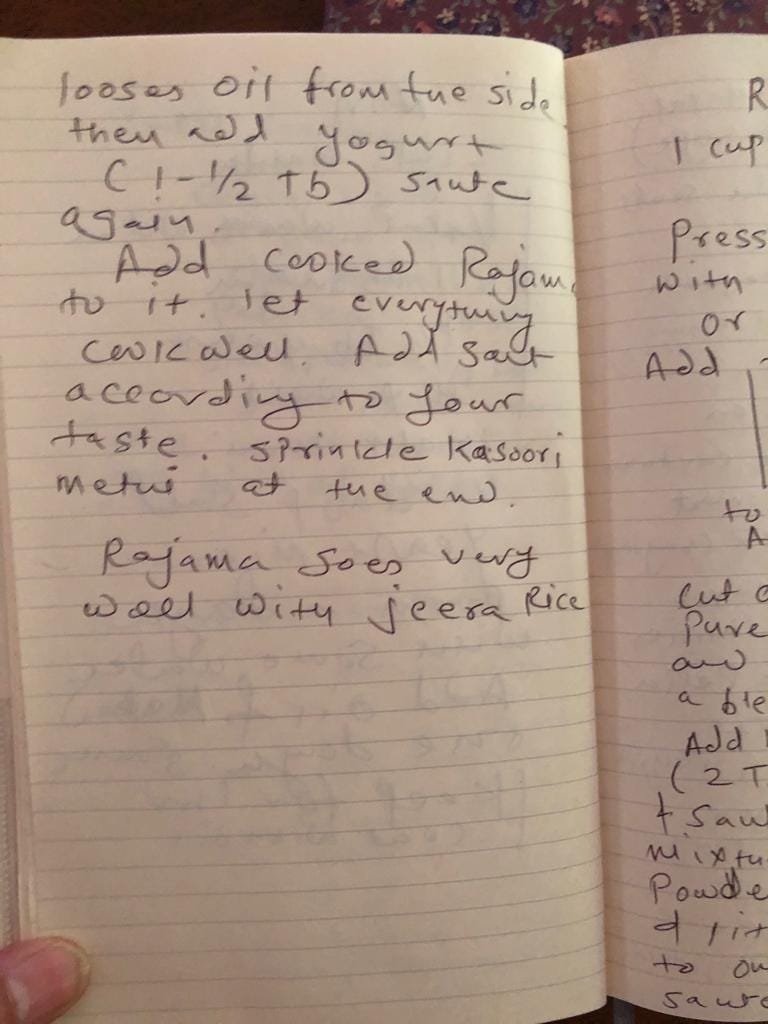 looses oil from the side
then add yogurt
( 1-1/2 Tb ) saute
again.
Add cooked Rajama
to it. let everything
cook well. Add salt
according to your
taste. sprinkle Kasoori
methi at the end.
Rajama goes very
well with jeera Rice
R
1 cup
Press
with
or
Add
to
A
Cut
Pure
and
a ble
Add
( 2 T
+ sau
mixtu
Powde
to
saute